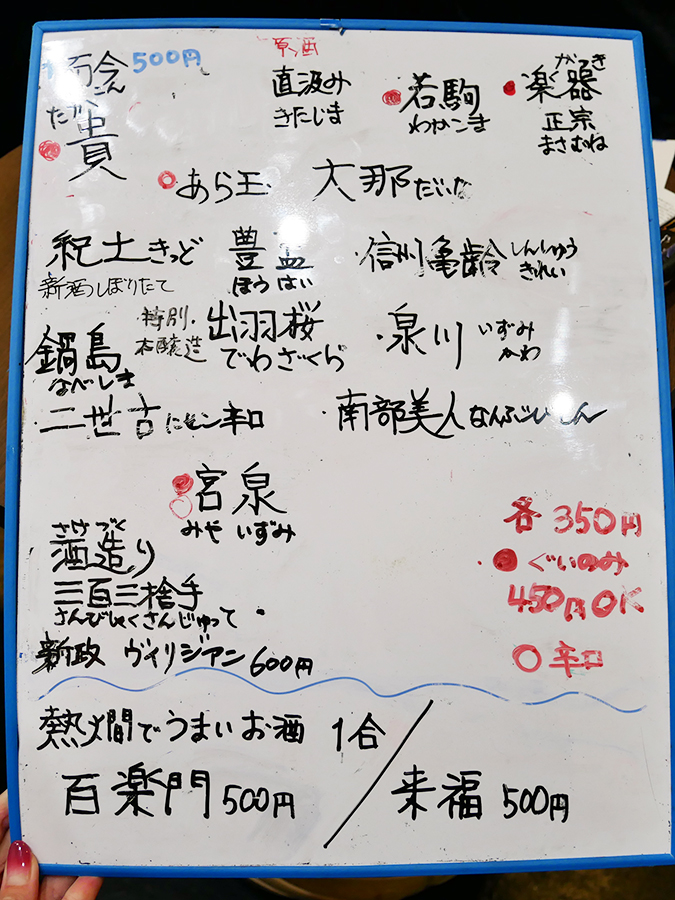 500円
貴
たか
原酒
直汲み
きたじま
若駒
わかこま
がっき
楽器
正宗
まさむね
あら玉
大那 だいな
紀土 きっど
新酒しぼりたて
豊盃
ほうはい
信州亀齢 しんしゅう
きれい
鍋島
なべしま
特別
本醸造
出羽桜
でわざくら
泉川 いずみ
かわ
二世古 にせこ 辛口
南部美人 なんぶびじん
宮泉
みやいずみ
さけづくり
酒造り
三百三捨手
さんびゃくさんじゅって
新政 ヴィリジアン 600円
各 350円
ぐいのみ
450円OK
辛口
熱燗でうまいお酒 1合
百楽門 500円
来福 500円